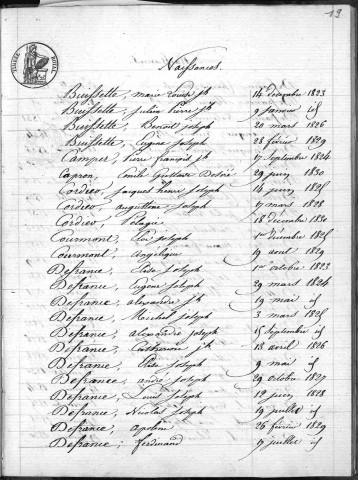 19
Naissances.
Buissette, marie Louise jh 14 décembre 1823
Buissette, julien Pierre jh 9 janvier id
Buissette, Benoit joseph 20 mars 1826
Buissette, Eugène joseph 28 février 1829
Camper, Pierre françois jh 17 septembre 1824
Capron, Emile Guillaute Désiré 29 juin 1830
Cordier, jacques henri Joseph 14 juin 1825
Cordier, augustine joseph 17 mars 1828
Cordier, Pélagie 18 décembre 1830
Courmont, joseph 1er décembre 1825
Courmont, Angélique 19 août 1829
Defrance, Elise Joseph 1er octobre 1823
Defrance, Eugène Joseph 29 mars 1824
Defrance, alexandre jh 19 mai id
Defrance, joseph 3 mars 1825
Defrance, alexandre joseph 15 septembre id
Defrance, Catherine jh 18 avril 1826
Defrance, Elise joseph 9 mai id
Defrance, andré joseph 29 octobre 1827
Defrance, Louis joseph 12 juin 1828
Defrance, Nicolas Joseph 19 juillet id
Defrance, apoline 26 février 1829
Defrance, ferdinand 9 juillet id